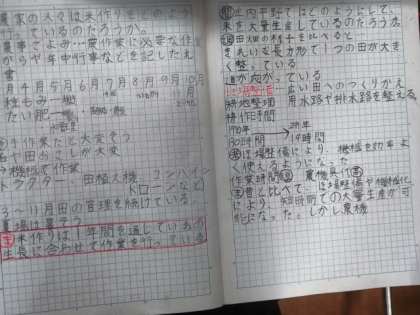 農家の人々は米作りをどのよう
行っているのだろうか。
農事ごよみ…農作業に必要な作
からや年中行事などを記したえ
3月4月5月6月7月8月9月10月
11月
種もみ
たい肥
手作業だと大変そう
や田おこしが大変
機械で作業
トラクター、田植え機、コンバイン
ドローンなど
3～11月田の管理を続けている。
米作りは1年間を通していねの
生長に合わせて作業を行っている
庄内平野ではどのようにして、
米を大量生産しているのだろうか。
田畑の様子を比べると
きれいな長方形で1つの田が大き
く整っている
道が広がっている
ほ場整備 広い田へのつくりかえ
耕地整理 用水路や排水路を整える
耕作時間
1970年 → 2015年
80時間 19時間
ほ場整備により、機械を効率よ
く使えるようになった
作業時間 農機具代
昔と比べて、ほ場整備や機械化
により、短時間での大量生産が可
能になった。しかし農機